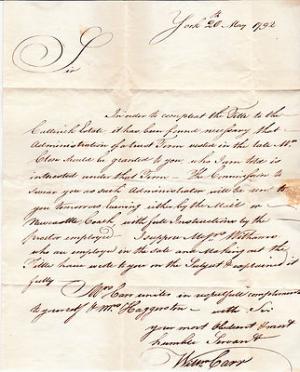 York 26th May 1792
Sir
In order to compleat the Title to the
Estate it has been found necessary that
Administration of a trust Term vested in the late Mr
should be granted to you who I am told is
interested under that Term – The Commission to
Swear you as such Administrator will be sent to
you tomorrow Evening either by the Mail or
Newcastle Coach with full Instructions by the
Proctor employed – I suppose Messrs
who are employed in the Sale and making out the
Title have wrote to you on the Subject & explained it
fully
Mrs Carr unites in respectfull compliments
to yourself & Mrs Haggerston – with Sir
your most obedient & most
humble Servant
Wm Carr